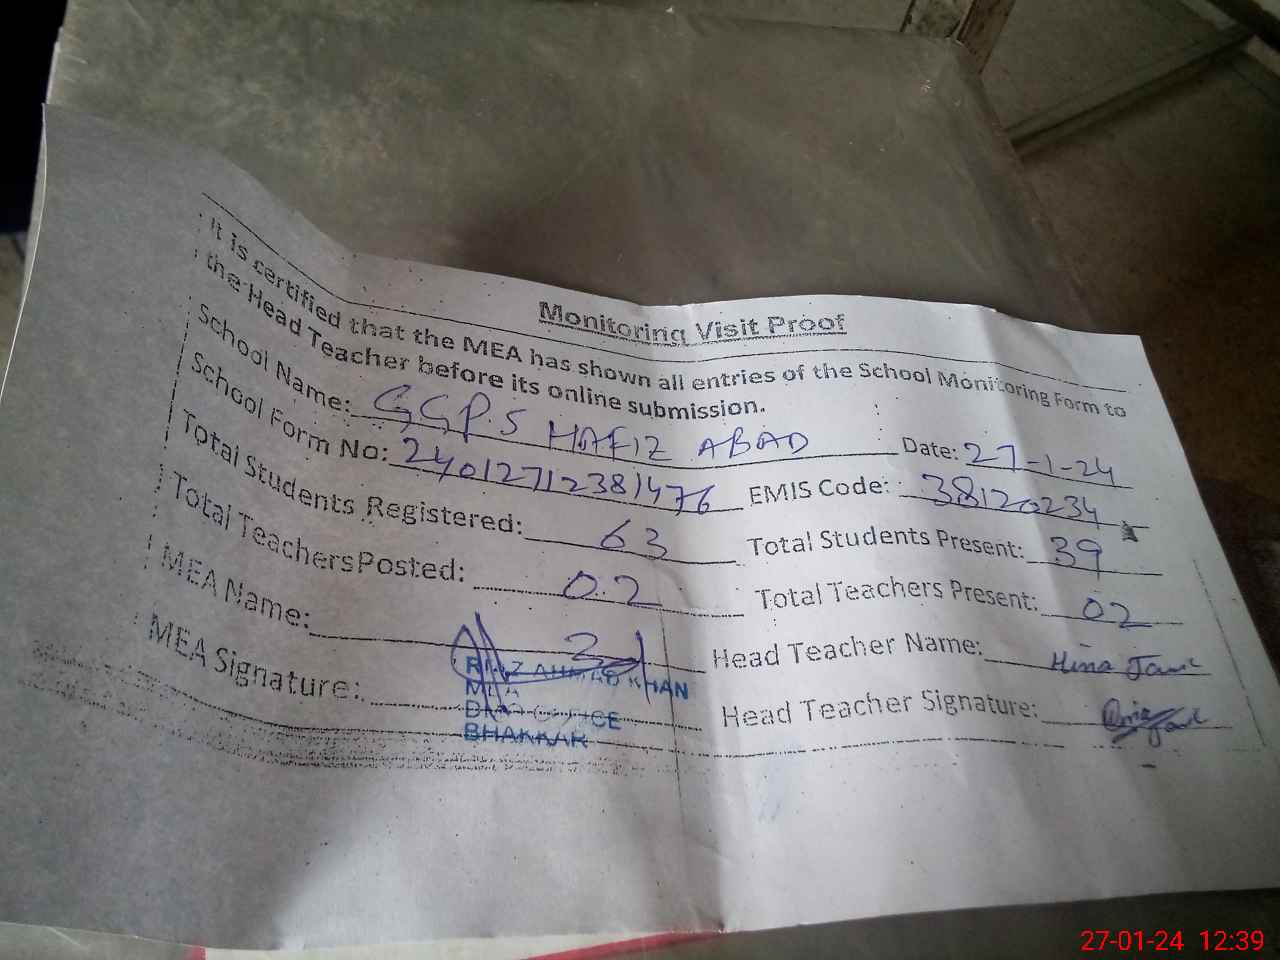 Monitoring Visit Proof
It is certified that the MEA has shown all entries of the School Monitoring Form to
the Head Teacher before its online submission.
School Name: GGPS HAFIZ ABAD Date: 27-1-24
School Form No: 24012712381476 EMIS Code: 38120234
Total Students Registered: 63 Total Students Present: 39
Total Teachers Posted: 02 Total Teachers Present: 02
MEA Name: Head Teacher Name: Hina
MEA Signature: Head Teacher Signature:
RIAZ AHMAD KHAN
MEA
OFFICE
BHAKKAR
27-01-24 12:39